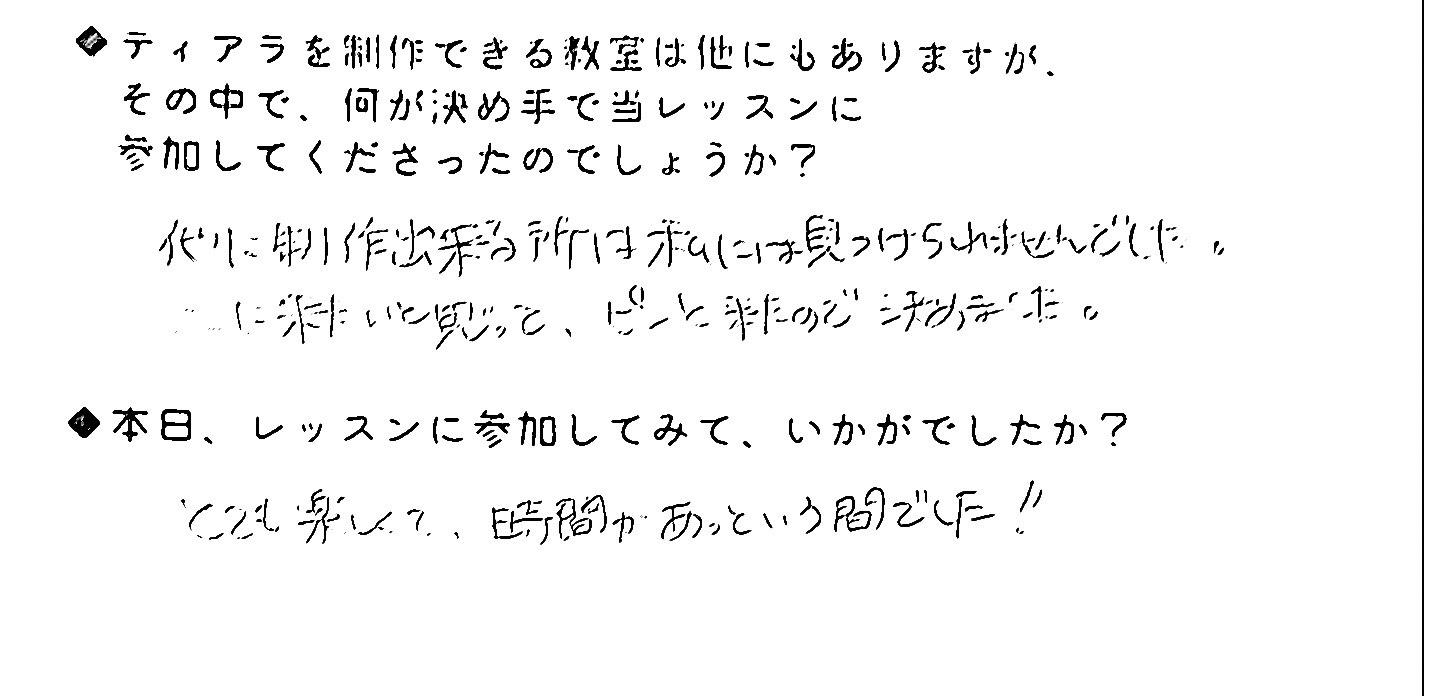 ◆ティアラを制作できる教室は他にもありますが、
その中で、何が決め手で当レッスンに
参加してくださったのでしょうか？
代りに制作出来る所は私には見つけられませんでした。
に来たいと思って、ピンと来たので決めました。
◆本日、レッスンに参加してみて、いかがでしたか？
とても楽しくて、時間があっという間でした!!